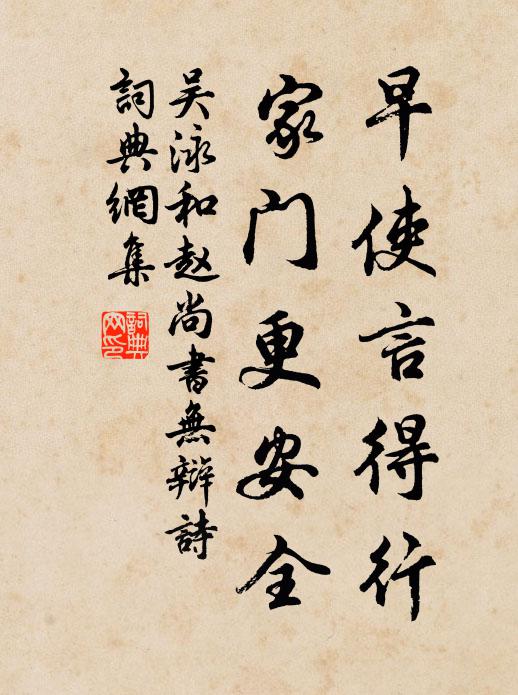 早使言得行
家门更安全
吴泳和赵尚書無辯詩
詞典網集
詞典网印